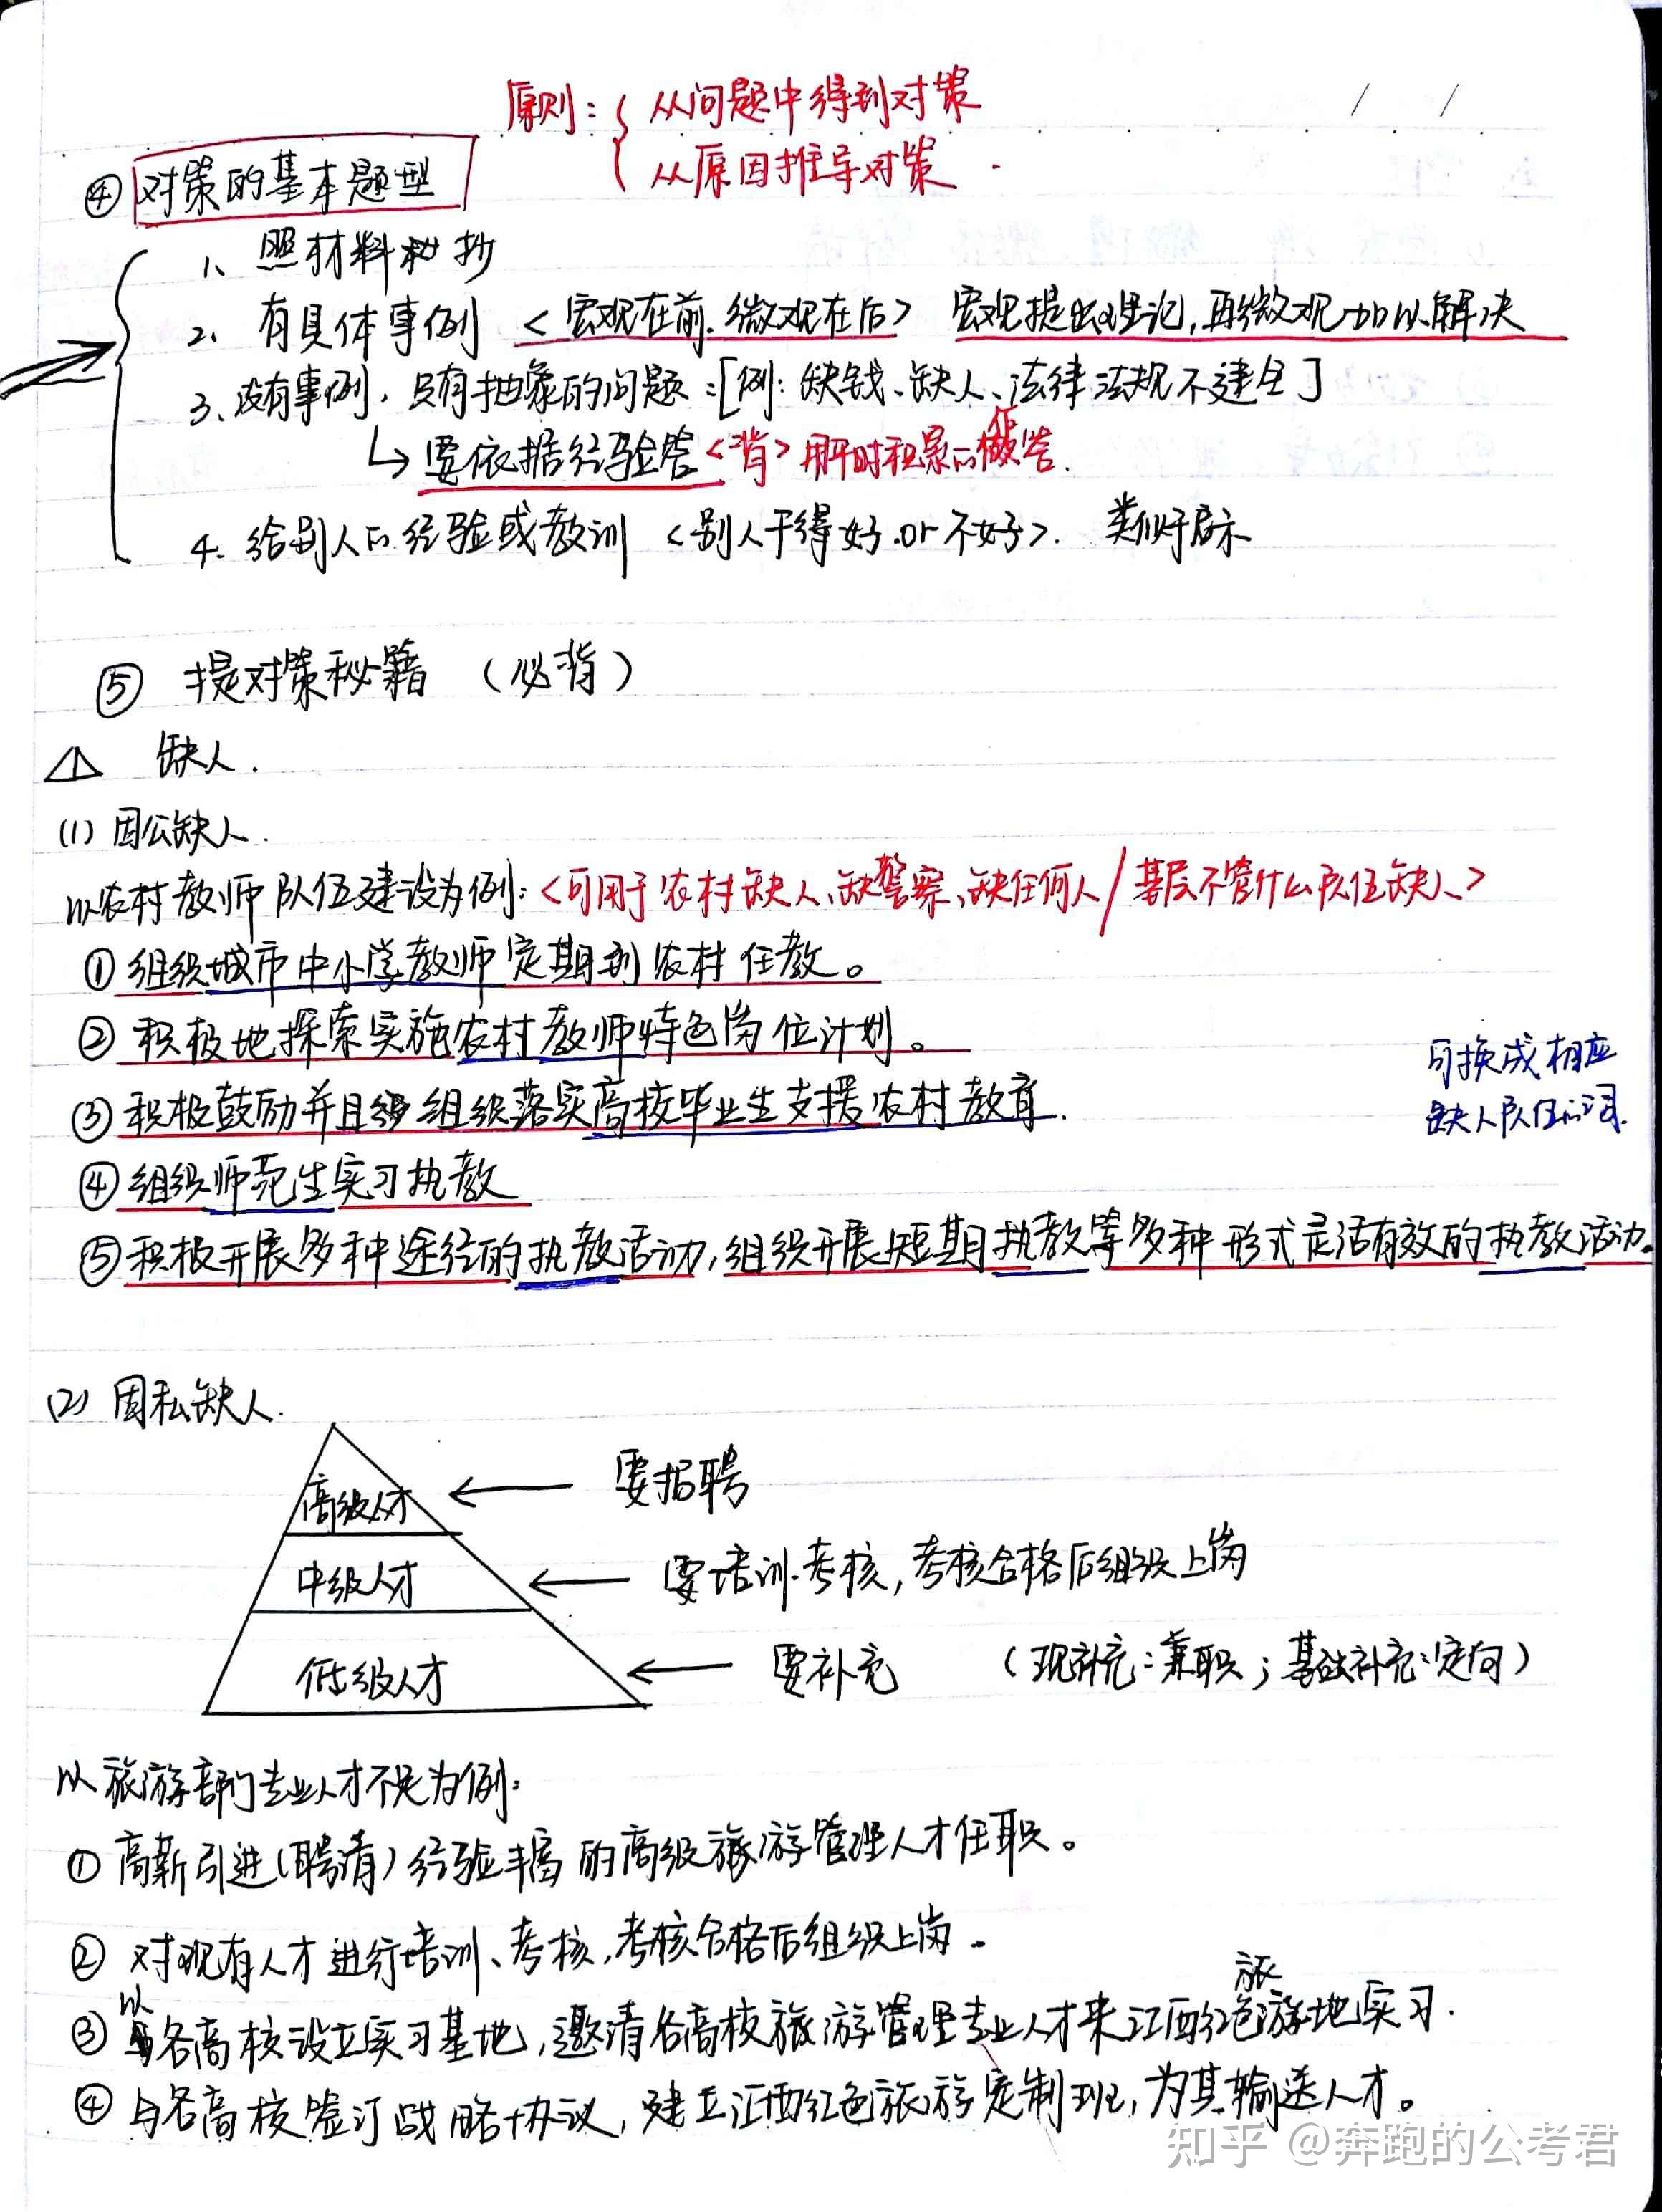 原则：{从问题中得到对策
从原因推导对策.
④ 对策的基本题型
1、照材料抄
2、有具体事例 <宏观在前.微观在后> 宏观提出理论,再微观加以解决
3、没有事例，只有抽象的问题：[例：缺钱、缺人、法律法规不健全]
↳ 要依据经验答<背>用平时积累的做答.
4. 给别人的经验或教训 <别人干得好.or不好>. 类似于启示
⑤ 提对策秘籍 （必背）
缺人.
(1) 因公缺人.
以农村教师队伍建设为例：<可用于农村缺人、缺警察、缺任何人/基层不管什么队伍缺人>
①组织城市中小学教师定期到农村任教。
②积极地探索实施农村教师特色岗位计划。
可换成相应
③积极鼓励并且组织落实高校毕业生支援农村教育.
缺人队伍的词.
④组织师范生实习执教
⑤积极开展多种途径的执教活动,组织开展短期执教等多种形式灵活有效的执教活动。
(2) 因私缺人.
高级人才 ← 要招聘
中级人才 ← 要培训.考核,考核合格后组织上岗
低级人才 ← 要补充 （现补充：兼职；基础补充：定向）
以旅游部门专业人才不足为例：
① 高薪引进(聘请)经验丰富的高级旅游管理人才任职。
② 对现有人才进行培训、考核,考核合格后组织上岗。
③ 以各高校设立实习基地,邀请各高校旅游管理专业人才来江西红色旅游地实习.
④ 与各高校签订战略协议,建立江西红色旅游定制班,为其输送人才。
知乎 @奔跑的公考君